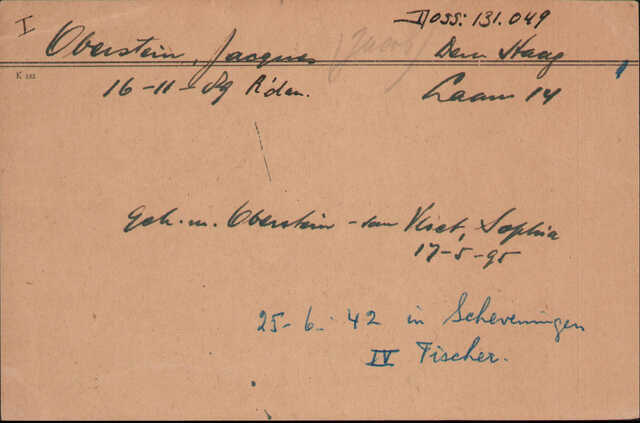 I
Doss: 131.049
Oberstein, Jacques (Jacob) Den Haag
K 152
16-11-89 R'dam. Laan 14
Geh. m. Oberstein - van Vliet, Sophia
17-5-95
25-6-'42 in Scheveningen
IV Fischer.